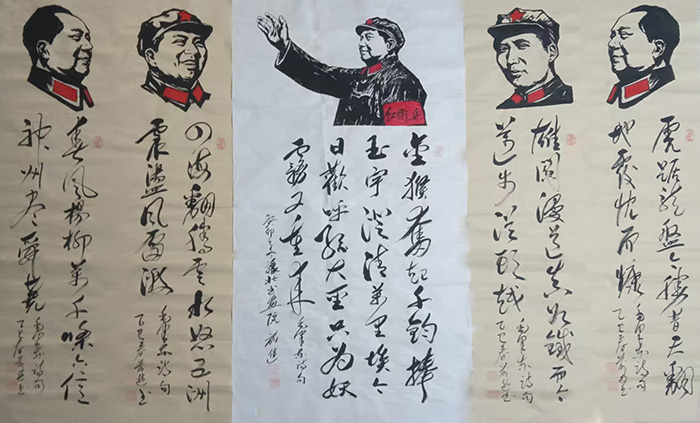 虎踞龙盘今胜昔天翻
地覆慨而慷
毛泽东诗句
雄关漫道真如铁而今
迈步从头越
毛泽东诗句
红卫兵
金猴奮起千钧棒
玉宇澄清万里埃今
日歡呼孙大圣只为妖
霧又重来
毛泽东诗句
四海翻腾云水怒五洲
震盪风雷激
毛泽东诗句
春风杨柳万千條六亿
神州尽舜尧
毛泽东诗句